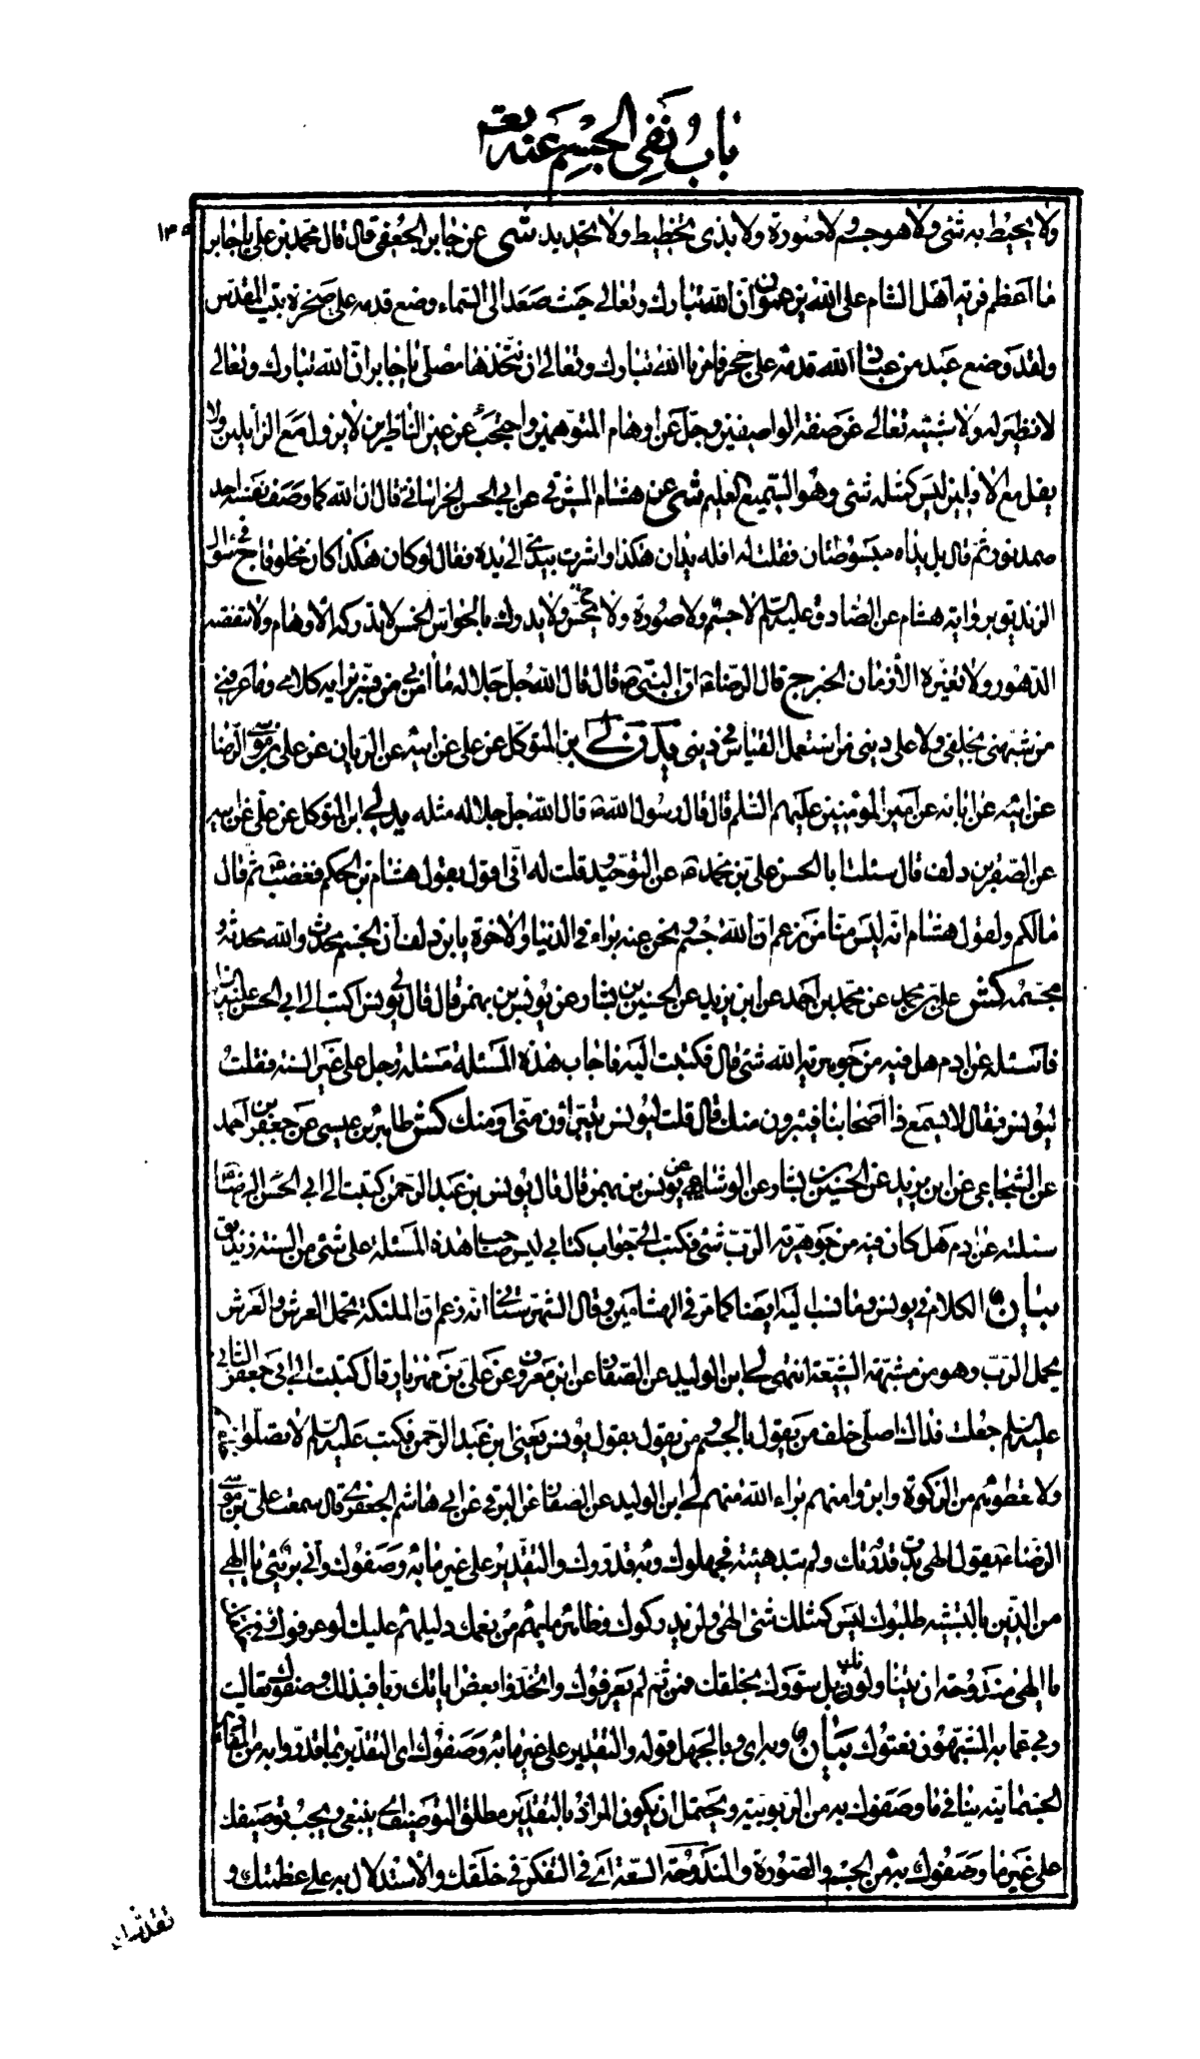 باب نفى الجسم عنه تعه
١٣٥
ولا يحيط به شئ ولا هو جسم ولا صورة ولا بذى تخطيط ولا تحديد شى عن جابر الجعفى قال قال محمد بن على يا جابر
ما اعظم فرية اهل الشام على الله يزعمون ان الله تبارك وتعالى حيث صعد الى السماء وضع قدمه على صخرة بيت المقدس
ولقد وضع عبد من عباد الله قدمه على حجر فامرنا الله تبارك وتعالى ان نتخذها مصلى يا جابر ان الله تبارك وتعالى
لا نظير له ولا شبيه تعالى عن صفة الواصفين وجل عن اوهام المتوهمين واحتجب عن عين الناظرين لا يزول مع الزايلين ولا
يفل مع الافلين ليس كمثله شئ وهو السميع العليم شى عن هشام المشرقى عن ابى الحسن الخراسانى قال ان الله كما وصف نفسه احد
صمد نور ثم قال بل يداه مبسوطتان فقلت له افله يدان هكذا واشرت بيدى الى يده فقال لو كان هكذا كان مخلوقا ج فى سؤال
الزنديق برواية هشام عن الصادق عليه السلم لا جسم ولا صورة ولا يحس ولا يدرك بالحواس الخمس لا يدركه الاوهام ولا تنقصه
الدهور ولا تغيره الازمان الخبر ج قال الرضا ع ان النبى ص قال قال الله جل جلاله ما امن بى من فسر برايه كلامى وما عرفنى
من شبهنى بخلقى ولا على دينى من استعمل القياس فى دينى يد ن لى بن المتوكل عن على عن ابيه عن الريان عن على بن موسى الرضا
عن ابيه عن ابائه عن امير المؤمنين عليهم السلم قال قال رسول الله ص قال الله جل جلاله مثله يد لى ابن المتوكل عن على عن ابيه
عن الصقر بن دلف قال سئلت ابا الحسن على بن محمد ع عن التوحيد وقلت له انى اقول بقول هشام بن الحكم فغضب ع ثم قال
ما لكم ولقول هشام انه ليس منا من زعم ان الله جسم ونحن عنه براء فى الدنيا والاخرة يا بن دلف ان الجسم محدث والله محدثه و
مجسمه كش على بن محمد عن محمد بن احمد عن ابن يزيد عن الحسين بن بشار عن يونس بن بهمن قال قال لى يونس اكتب الى ابى الحسن عليه السلم
فاسئله عن ادم هل فيه من جوهرية الله شئ قال فكتبت اليه فاجاب هذه المسئلة مسئلة رجل على غير السنة فقلت
ليونس فقال لا يسمع ذا اصحابنا فيبرون منك قال قلت ليونس يتبرؤن منى او منك كش طاهر بن عيسى عن جعفر بن احمد
عن الشجاعى عن ابن يزيد عن الحسين بن بشار عن الوشاء عن يونس بن بهمن قال قال يونس بن عبد الرحمن كتبت الى ابى الحسن الرضا
سئلته عن ادم هل كان فيه من جوهرية الرب شئ فكتب الى جواب كتابى ليس صاحب هذه المسئلة على شئ من السنة زنديق
بيان الكلام فى يونس وما نسب اليه ايضا كما مر فى الهشامين وقال الشهرستانى انه زعم ان الملئكة تحمل العرش والعرش
يحمل الرب وهو من مشبهة الشيعة انتهى لى ابن الوليد عن الصفار عن ابن معروف عن على بن مهزيار قال كتبت الى ابى جعفر الثانى
عليه السلم جعلت فداك اصلى خلف من يقول بالجسم ومن يقول بقول يونس يعنى ابن عبد الرحمن فكتب عليه السلم لا تصلوا
ولا تعطوهم من الزكوة وابرؤا منهم براء الله منهم لى ابن الوليد عن الصفار عن البرقى عن ابى هاشم الجعفرى قال سمعت على بن موسى
الرضا ع يقول الهى بدت قدرتك ولم تبد هيئة فجهلوك وبه قدروك والتقدير على غير ما به وصفوك وانى برئ يا الهى
من الذين بالتشبيه طلبوك ليس كمثلك شئ الهى ولن يدركوك وظاهر ما بهم من نعمك دليلهم عليك لو عرفوك وفى خلقك
يا الهى مندوحة ان يتناولوك بل سووك بخلقك فمن ثم لم يعرفوك واتخذوا بعض اياتك ربا فبذلك وصفوك تعاليت
ربى عما به المشبهون نعتوك بيان وبه اى وبالجهل قوله والتقدير على غير ما به وصفوك اى التقدير بما قدروا به من المقادير
الجسمانية ينافى ما وصفوك به من الربوبية ويحتمل ان يكون المراد بالتقدير مطلق التوصيف اى ينبغى ويجب توصيفك
على غير ما وصفوك به من الجسم والصورة والمندوحة السعة اى فى التفكر فى خلقك والاستدلال به على عظمتك و